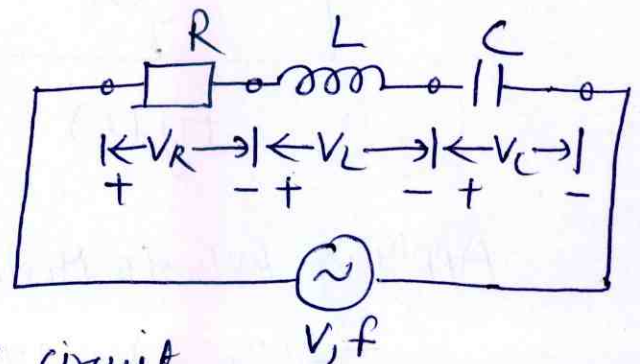 R L C
|←V_R→|←V_L→|←V_C→|
+ - + - + -
~
V, f
circuit